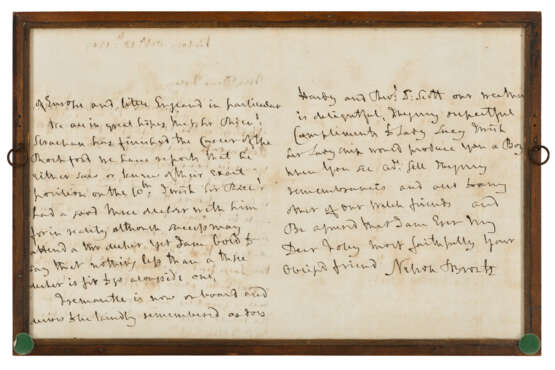 of Europe and little England in particular
We are in great hopes that Sir Rich:ᵈ
Strachan has finished the Career of the
Rochfort we have reports that he
either saw or knew of their exact
position on the 10ᵗʰ I wish Sir Rich:ᵈ
had a good three decker with him
for in reality although success may
attend a two decker yet I am bold to
say that nothing less than a three
decker is fit to go alongside one,
Fremantle is now on board and
desires to be kindly remembered as does
Hardy and Revᵈ Dʳ Scott our weather
is delightful, my respectful
Compliments to Lady Lucy I wish
her Lady Ship would produce you a Boy
when you see Adˡ Sell my
remembrances and also to any
other of our Welch friends and
Be assured that I am Ever My
Dear Foley most faithfully your
Obliged friend Nelson & Bronte